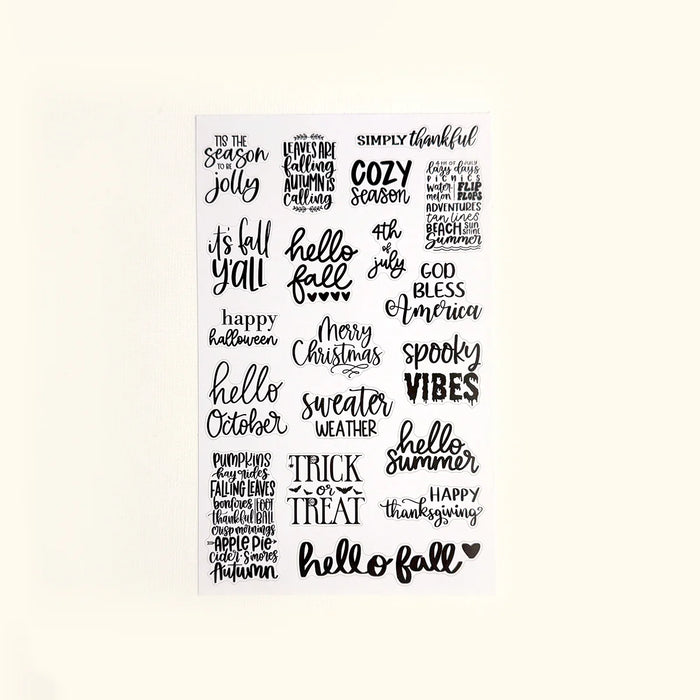 'TIS THE
season
TO BE
jolly
LEAVES ARE
falling
AUTUMN IS
calling
SIMPLY thankful
COZY
season
4TH OF JULY
lazy days
PICNICS
water
melon
FLIP
FLOPS
ADVENTURES
tan lines
BEACH SUN
SHINE
Summer
it's fall
Y'ALL
hello
fall
4th
of
july
GOD
BLESS
America
happy
halloween
Merry
Christmas
spooky
VIBES
hello
October
sweater
WEATHER
hello
summer
PUMPKINS
hay rides
FALLING LEAVES
bonfires FOOT
thankful BALL
crisp mornings
APPLE PIE
cider · s'mores
Autumn
TRICK
or
TREAT
HAPPY
thanksgiving
hello fall